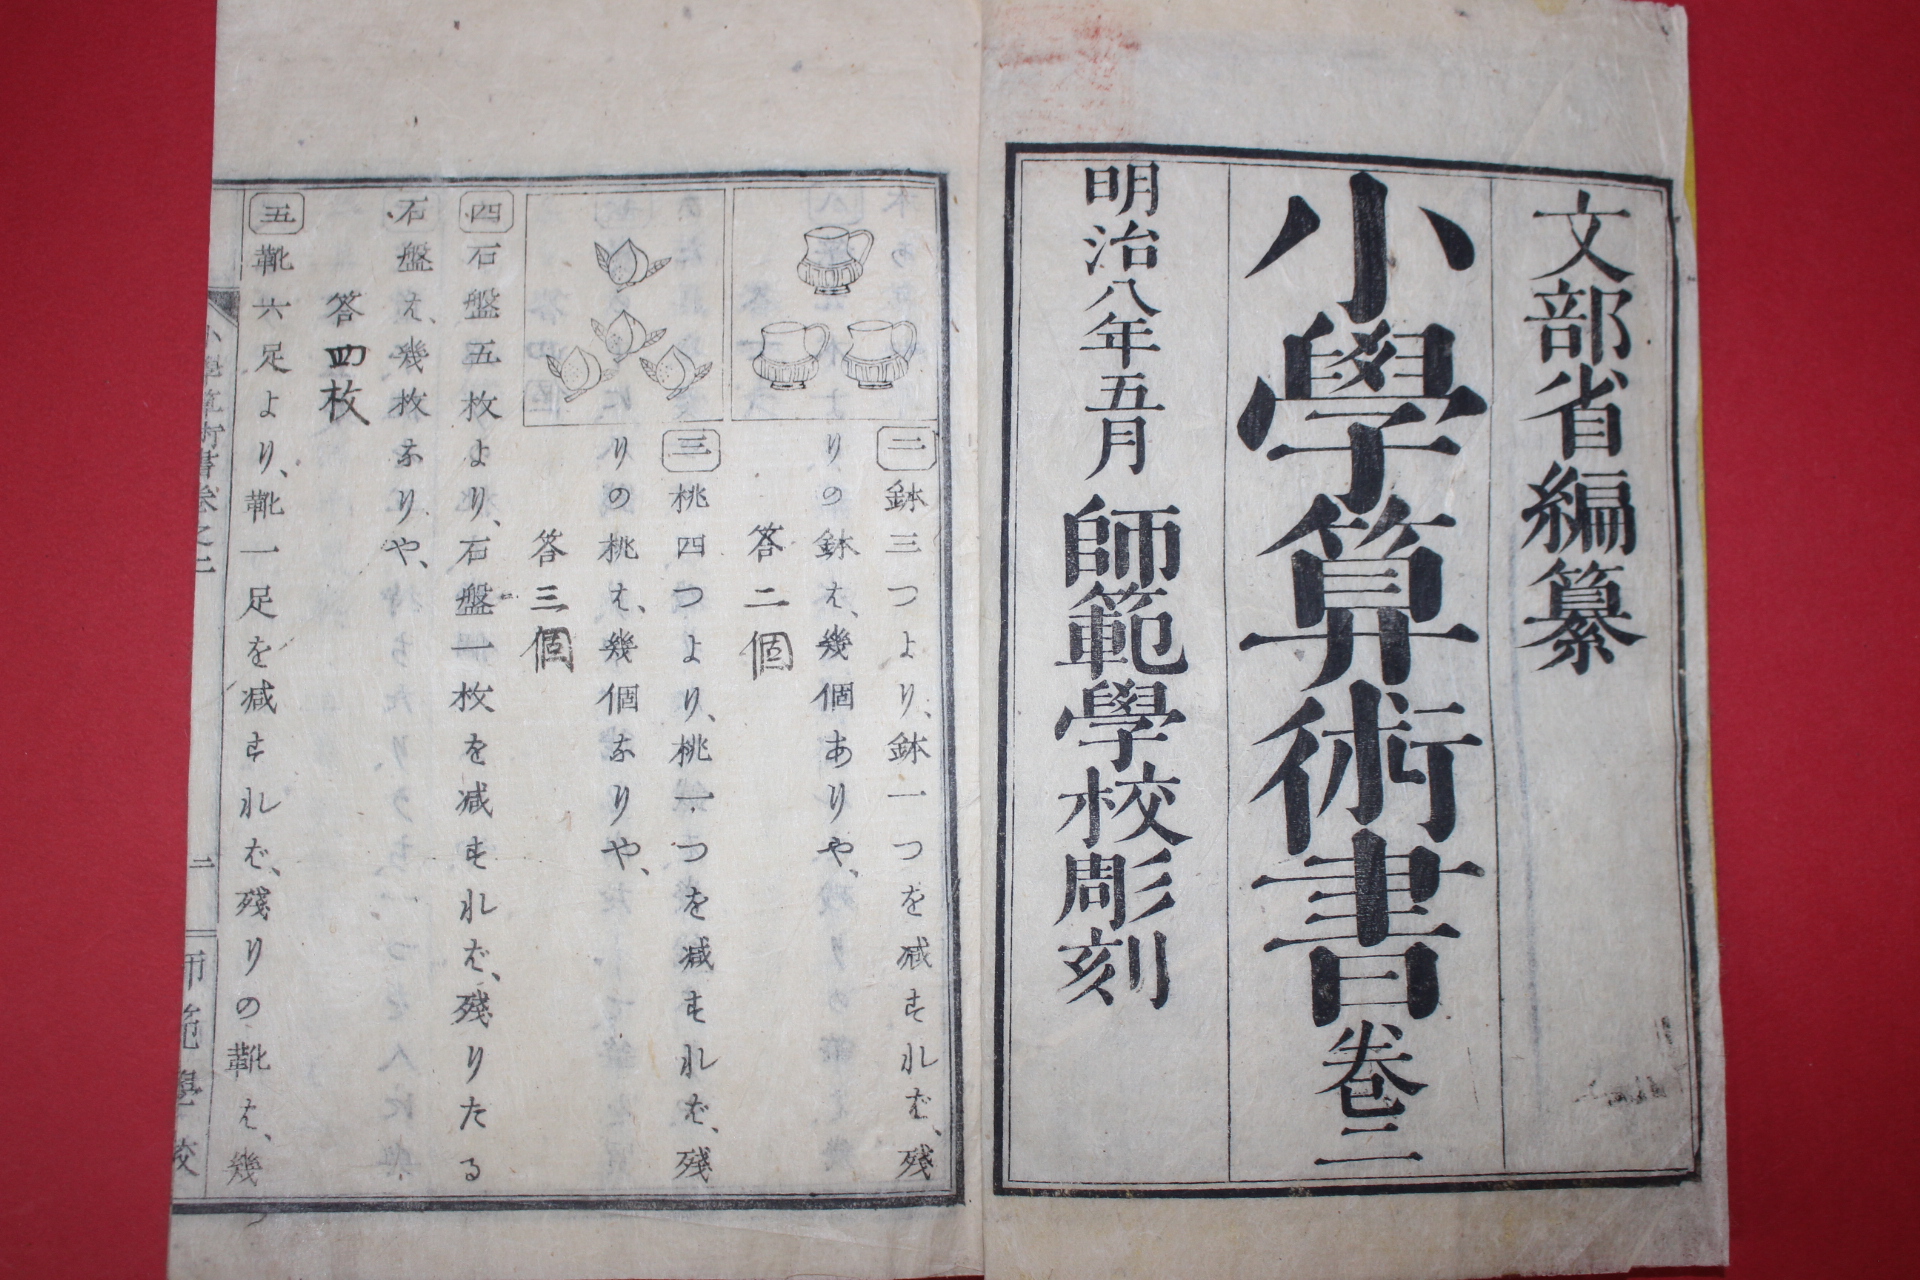 文部省編纂
小學算術書卷二
明治八年五月 師範學校彫刻
二 鉢三つより、鉢一つを減すれば、殘
りの鉢は、幾個ありや、
答二個
三 桃四つより、桃一つを減すれば、殘
りの桃は、幾個なりや、
答三個
四 石盤五枚より、石盤一枚を減すれば、殘りたる
石盤は、幾枚なりや、
答四枚
五 靴六足より、靴一足を減すれば、殘りの靴は、幾
小學算術書卷之二
二
師範學校